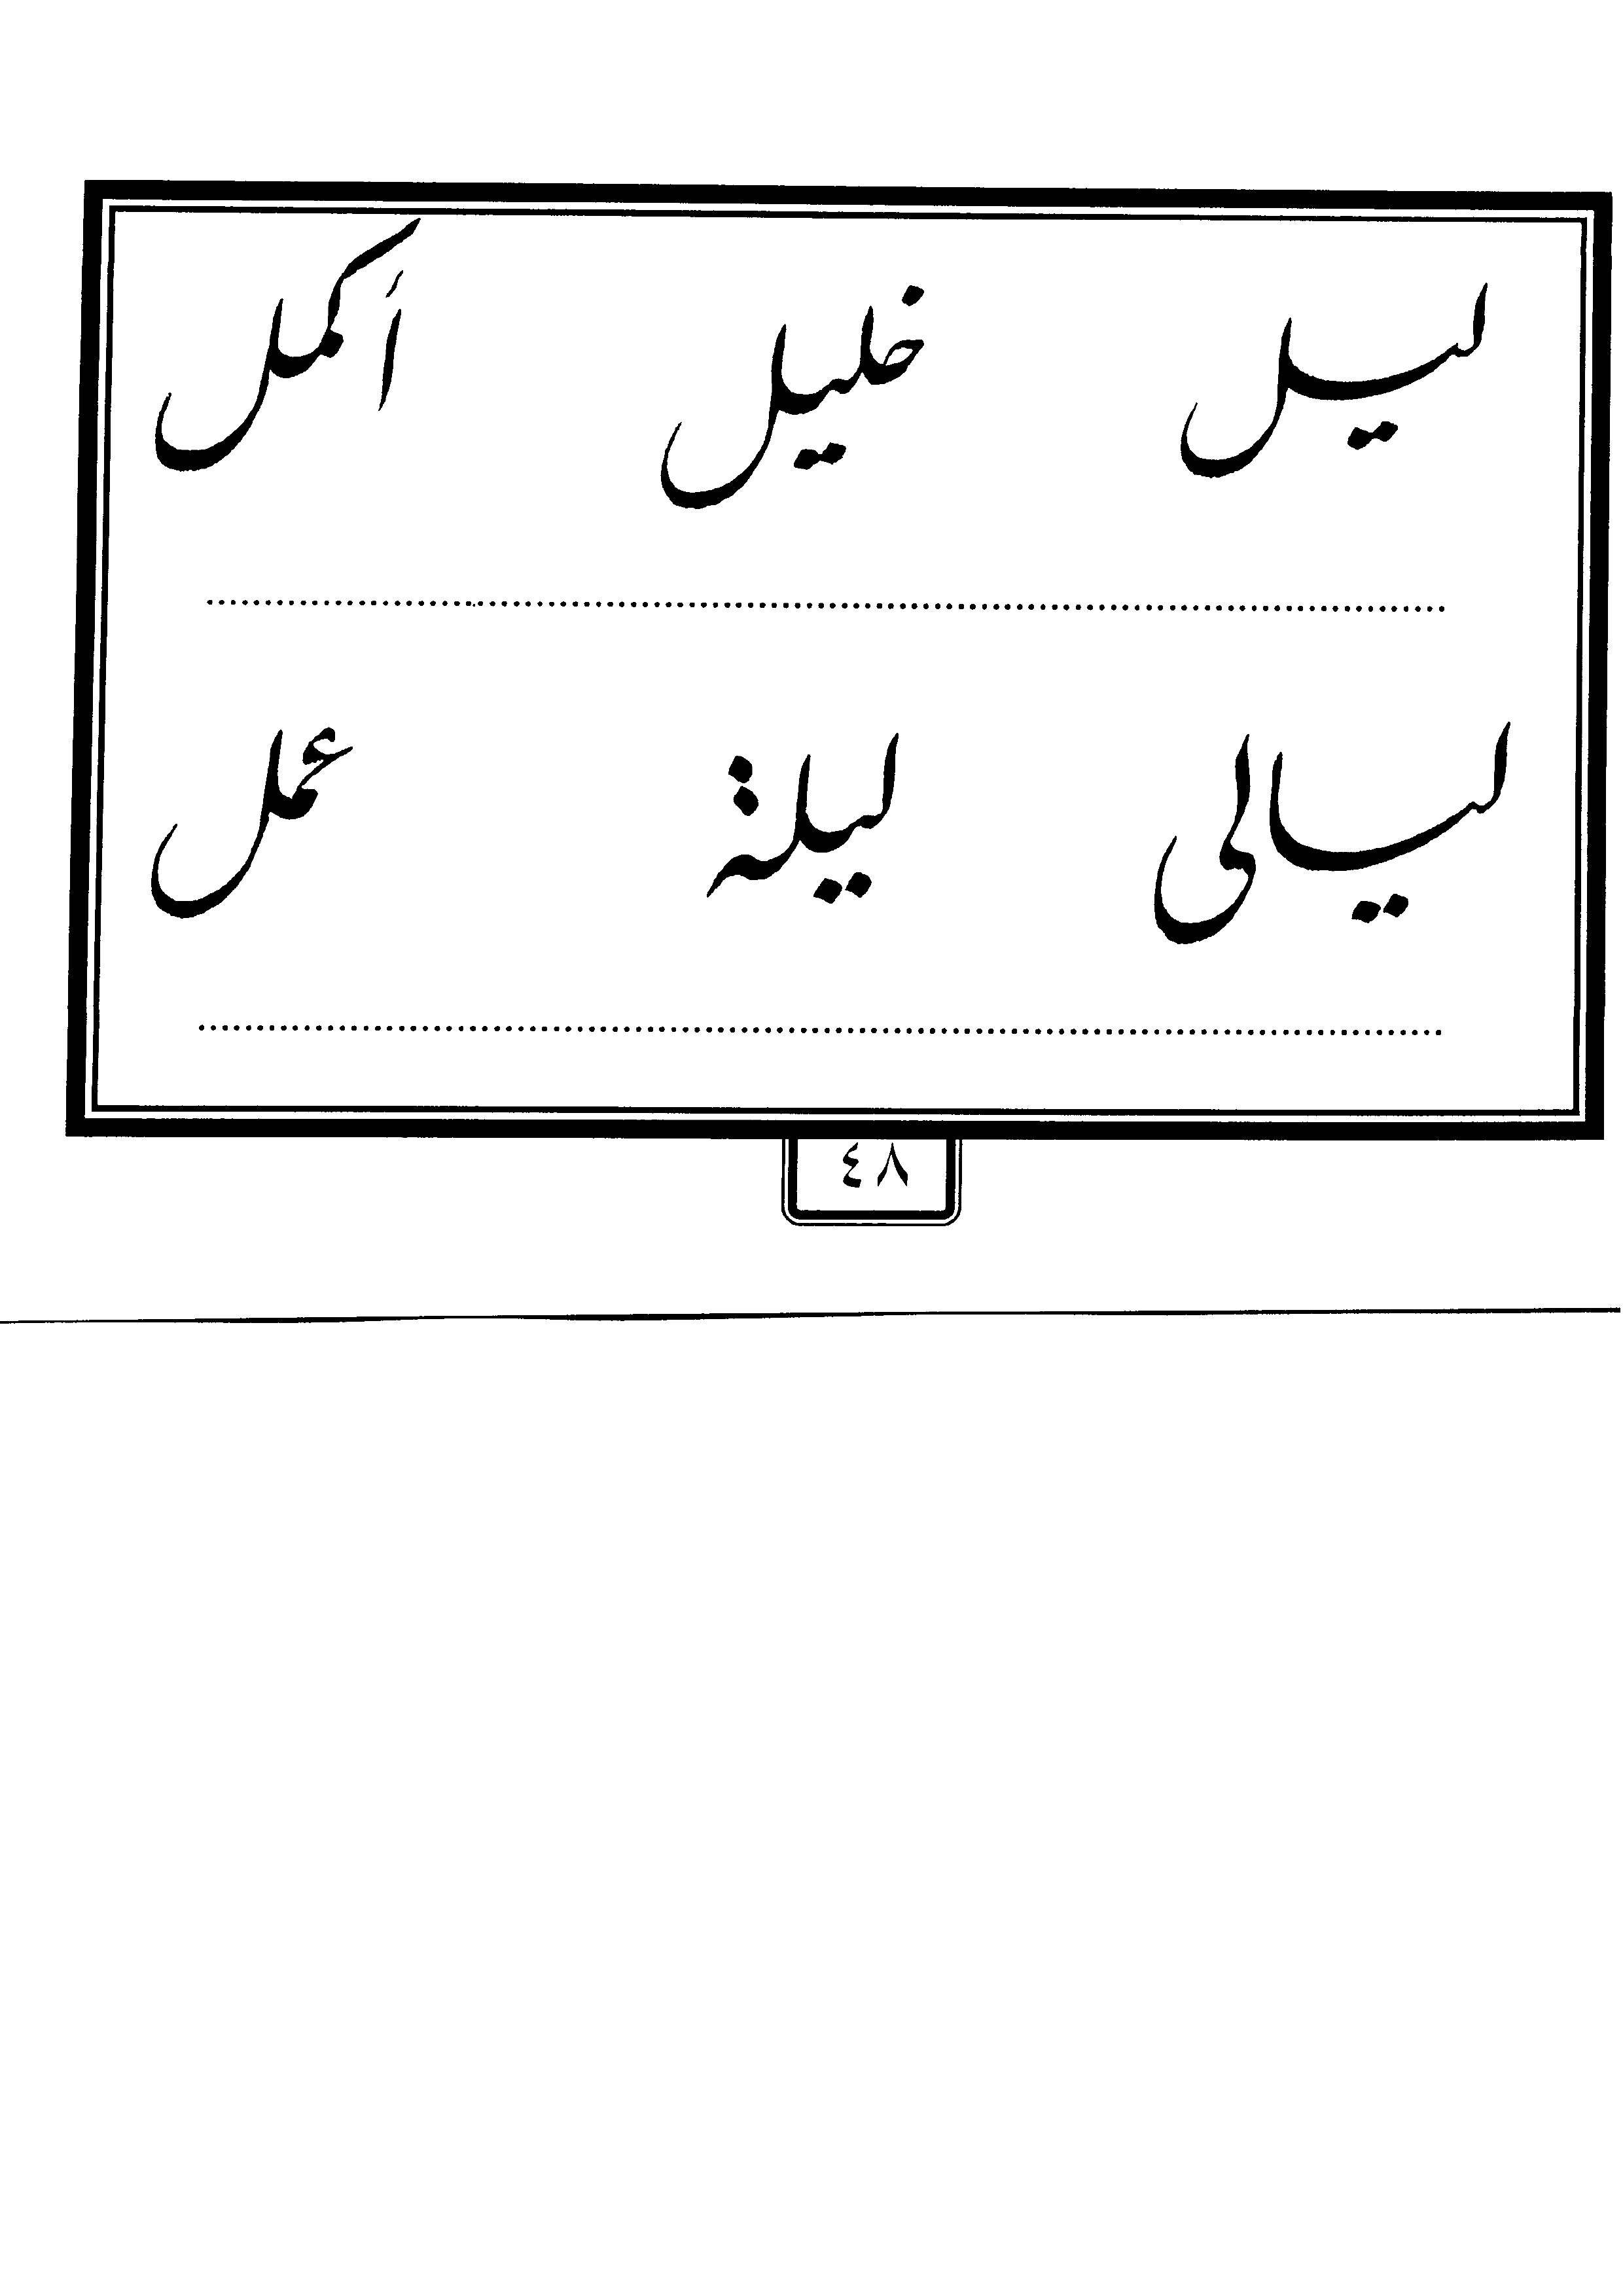 ليل خليل أَكمل
ليالى ليلة عمل
٤٨